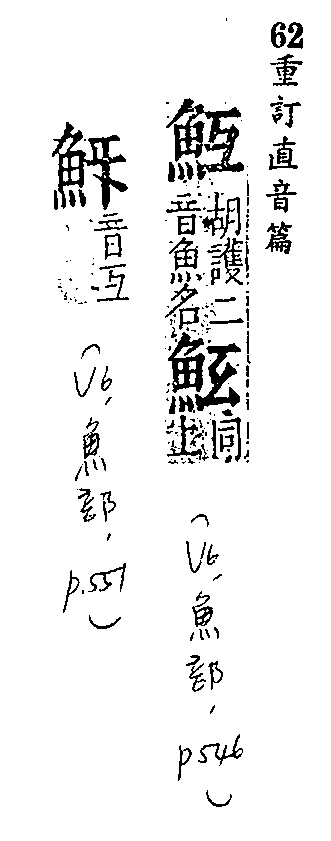 62重訂直音篇
魱胡護二音魚名同上
(V6, 魚部, p546)
音互
(V6, 魚部, p.551)